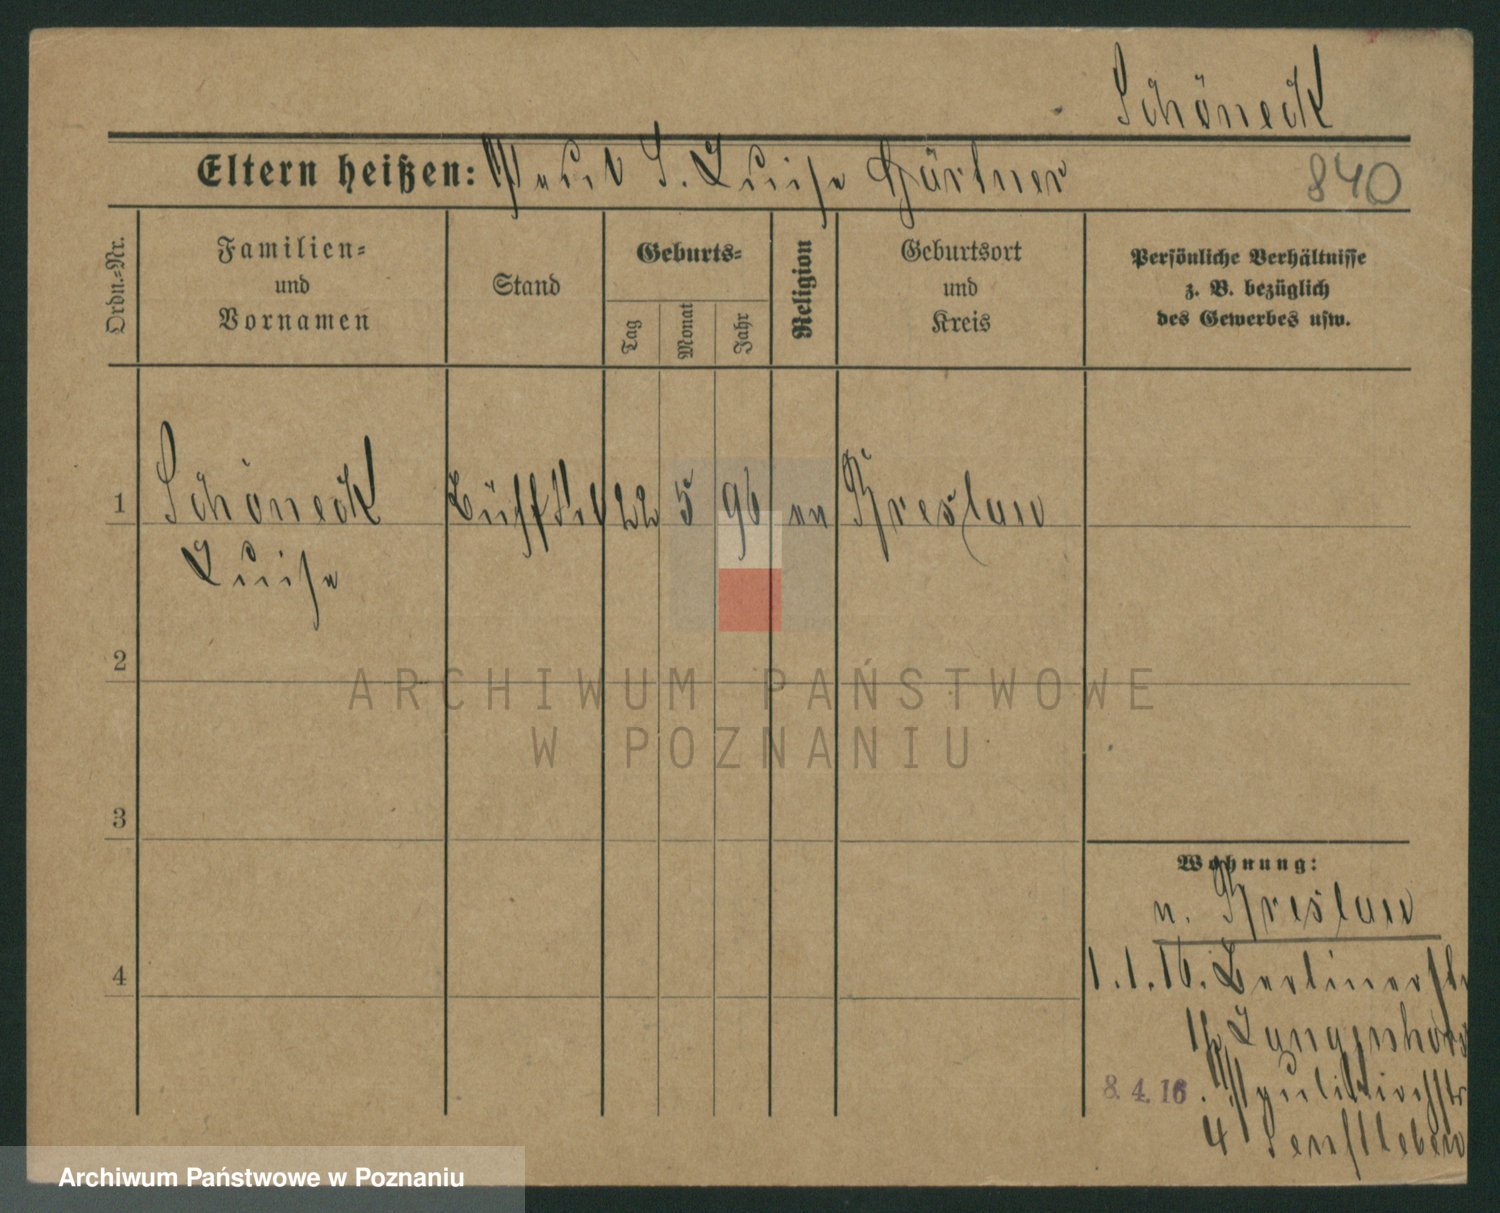 Schöneck
Eltern heißen: Paul S. Luise Gärtner
840
Ordn.-Nr.
Familien-
und
Vornamen
Stand
Geburts-
Tag
Monat
Jahr
Religion
Geburtsort
und
Kreis
Persönliche Verhältnisse
z. B. bezüglich
des Gewerbes usw.
1 Schöneck 22 5 96 Breslau
Luise
2
3
4
Wohnung:
n. Breslau
1.1.16. Berlinerstr
Langenhors
8.4.16.
4 Senftleben
ARCHIWUM PAŃSTWOWE
W POZNANIU
Archiwum Państwowe w Poznaniu